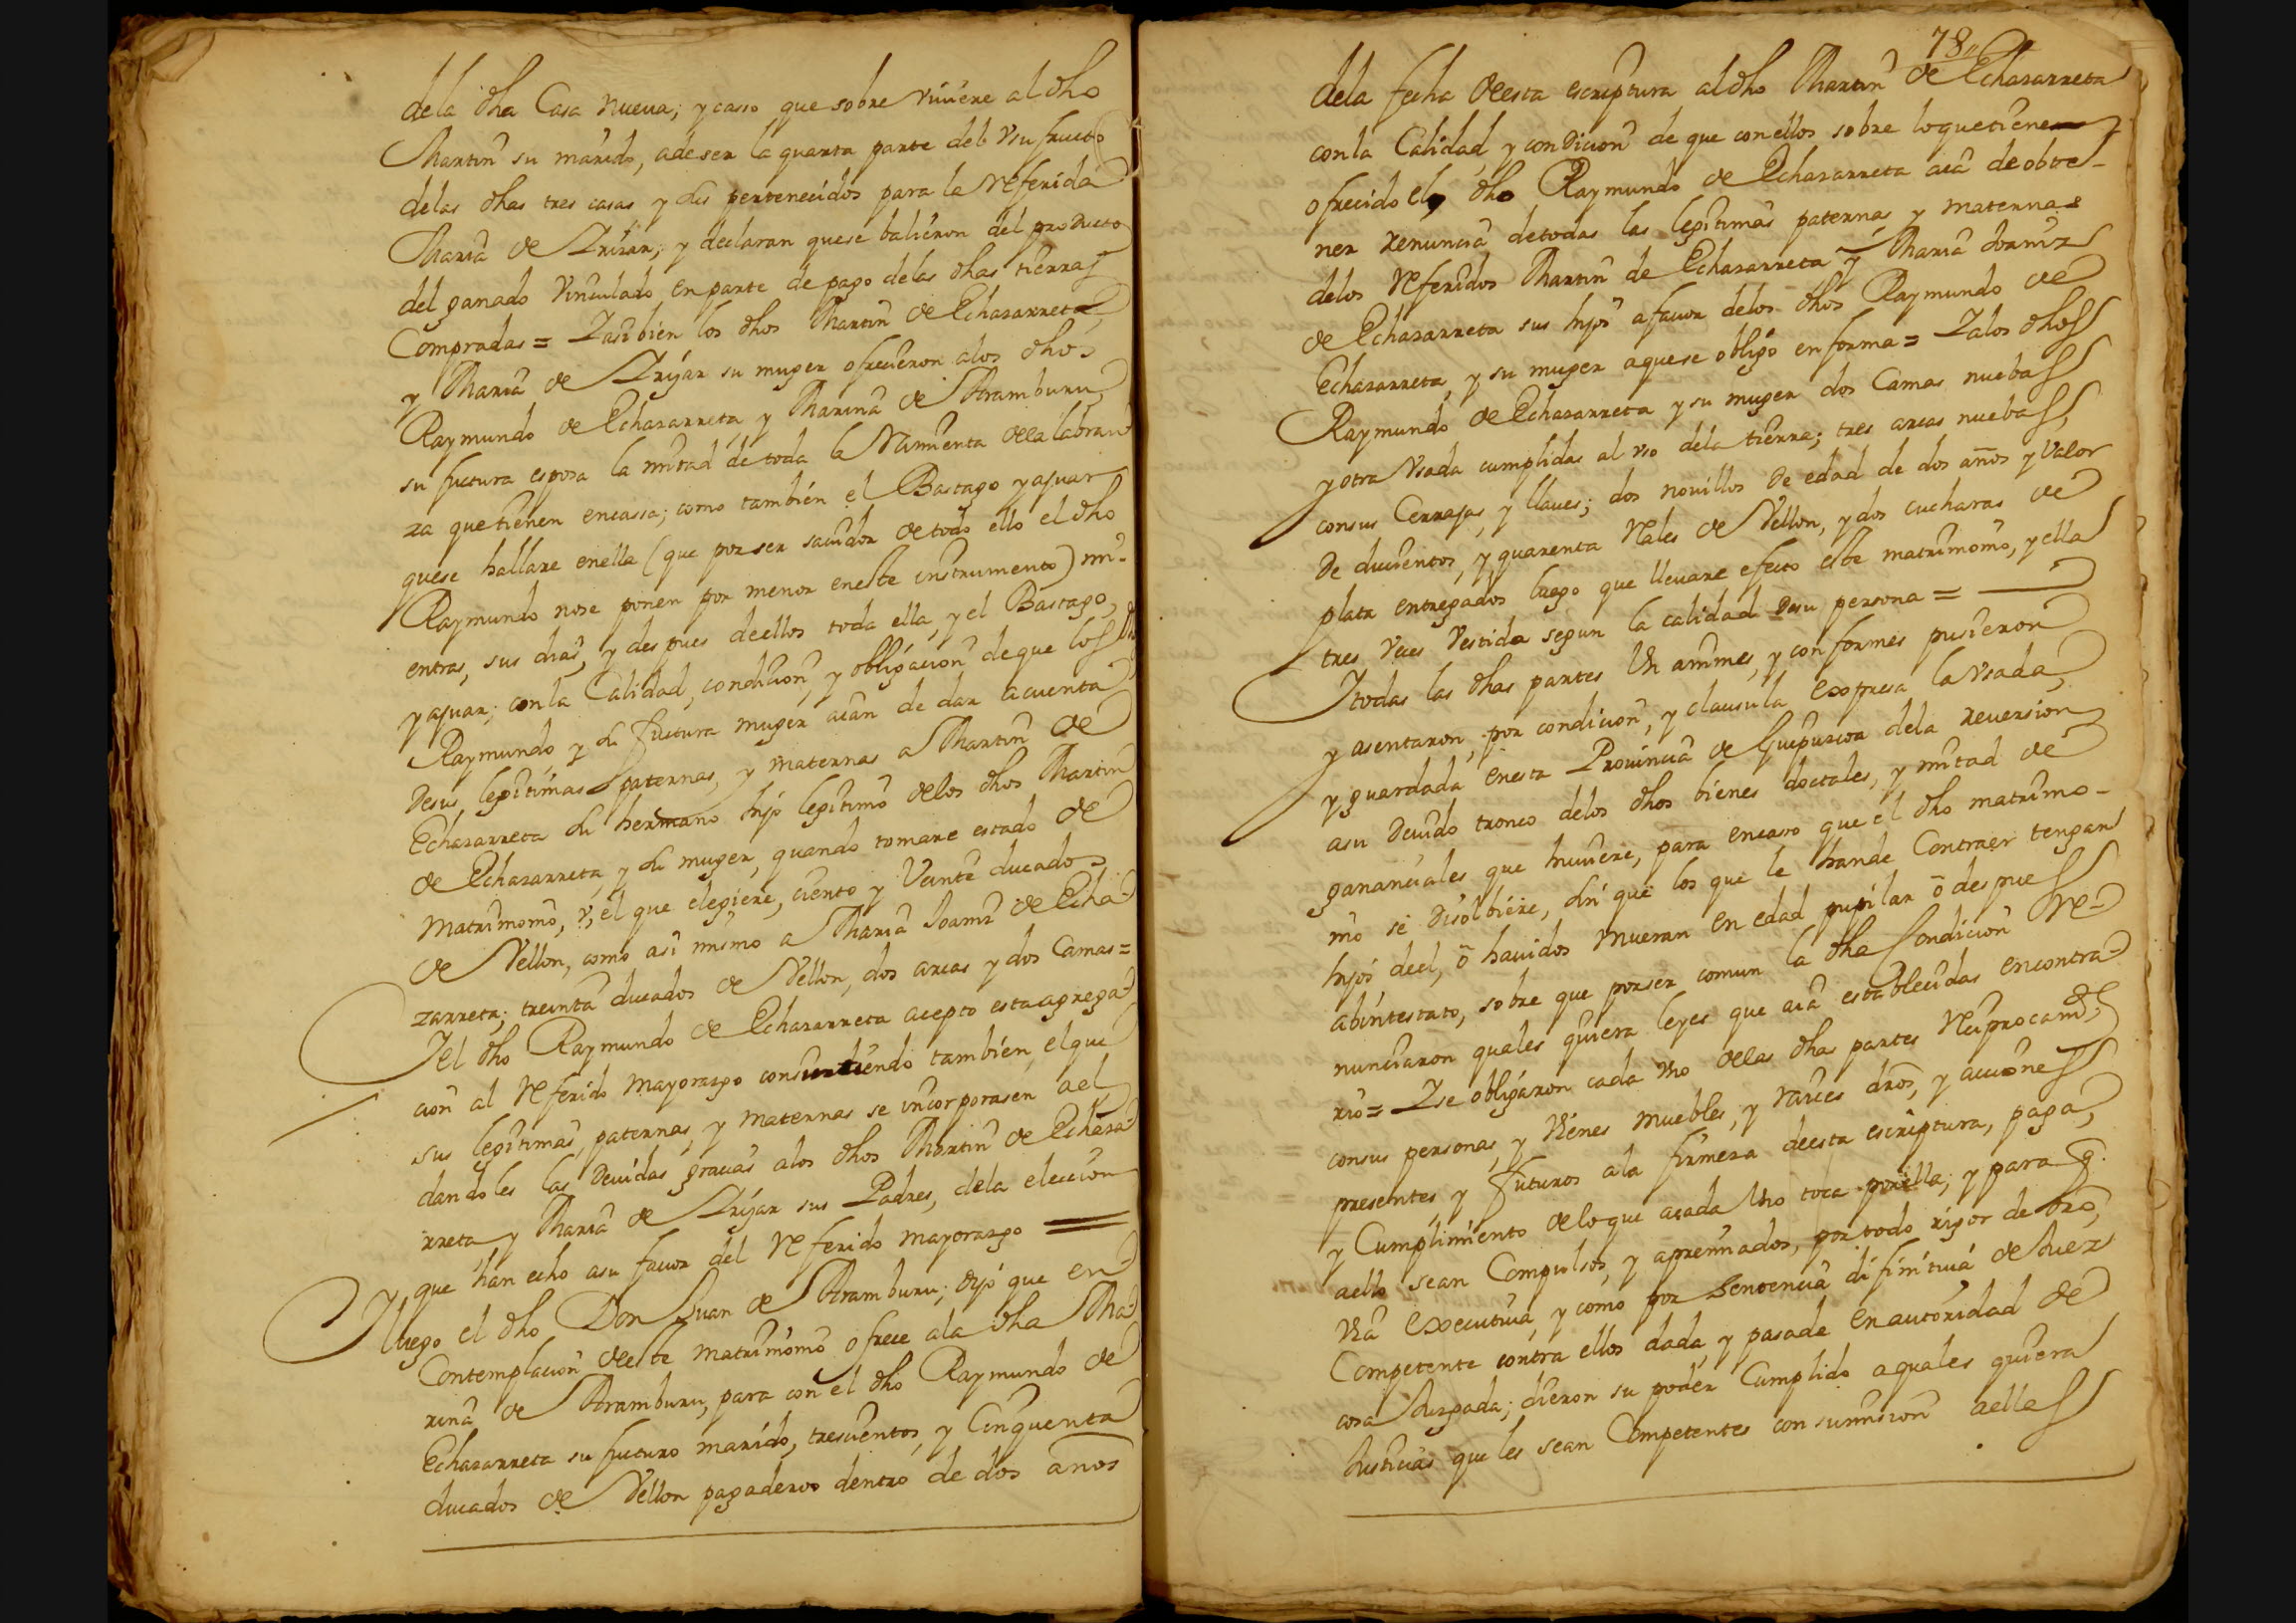 dela dha Casa nueua; y casso que sobre viuiere al dho
Martin su marido, adeser la quarta parte del vsufructo
delas dhas tres casas y sus pertenecidos para la referida
Maria de Irizar; y declaran quese balieron del producto
del ganado vinculado en parte de pago delas dhas tierras
Compradas = Iasibien los dhos Martin de Echazarreta
y Maria de Irijar su muger ofrecieron alos dhos
Raymundo de Echazarreta y Marina de Aramburu
su fuctura esposa la mitad de toda la dela labran
za que tienen encassa; como también el Bastago y ajuar
quese hallare enella (que por ser sauidor de todo ello el dho
Raymundo nose ponen por menor eneste instrumento) mi-
entras, sus dias, y despues deellos toda ella, y el Bastago,
y ajuar; con la Calidad, condicion, y obligacion de que los
Raymundo, y su fuctura muger aian de dar acuenta
desus legitimas paternas, y maternas a Martin de
Echazarreta su hermano hijo legitimo delos dhos Martin
de Echazarreta, y su muger, quando tomare estado de
Matrimonio, v, el que elegiere, ciento y Veinte ducados
de Vellon, como asi mismo a Maria Joaniz de Echa
zarreta; treinta ducados de Vellon, dos arcas y dos Camas =
Iel dho Raymundo de Echazarreta acepto esta agrega
cion al referido mayorazgo consintiendo también, elque
sus legitimas, paternas, y maternas se incorporasen ael,
dandoles las deuidas gracias alos dhos Martin de Echaza
rreta y Maria de Irijar sus Padres, dela eleccion
que han echo asu fauor del referido mayorazgo =
Iluego el dho Don Juan de Aramburu; dijo que en
Contemplacion deeste matrimonio ofrece ala dha Ma
rina de Aramburu, para con el dho Raymundo de
Echazarreta su futuro marido, trescientos, y Cinquenta
ducados de Vellon pagaderos dentro de dos años
78
dela fecha deesta escriptura, aldho Martin de Echazarreta
conla Calidad, y condicion de que conellos sobre loquetiene
ofrecido el dho Raymundo de Echazarreta aia de obte-
ner renuncia detodas las legitimas paternas, y maternas
delos referidos Martin de Echazarreta y Maria Joaniz
de Echazarreta sus hijos afauor delos dhos Raymundo de
Echazarreta, y su muger aquese obligo en forma = Ialos dhos
Raymundo de Echazarreta y su muger dos Camas nuebas
y otra vsada cumplidas al vso dela tierra; tres arcas nuebas
consus Cerrajas, y llaues; dos nouillos de edad de dos años y valor
de ducientos, y quarenta reales de Vellon, y dos cucharas de
plata entregados luego que lleuare efecto este matrimonio, y ella
tres veces Vestida segun la calidad desu persona =
Itodas las dhas partes vnanimes, y conformes pusieron
y asentaron, por condicion, y clausula expresa la vsada,
y guardada enesta Prouincia de Guipuzcoa dela reuersion
asu deuido tronco delos dhos bienes doctales, y mitad de
gananciales que huuiere, para encaso que el dho matrimo-
nio se disolbiere, sin que los que le hande Contraer tengan
hijos deel, ò hauidos mueran en edad pupilar ò despues
abintestato, sobre que porser comun la dha Condicion re-
nunciaron quales quiera leyes que aia establecidas encontra
rio = Ise obligaron cada vno delas dhas partes reciprocamte
consus personas, y vienes muebles, y raices dros, y acciones
presentes, y futuros ala firmeza deesta escriptura, paga,
y Cumplimiento deloque acada vno toca porella; y para q
aello sean Compulsos, y apremiados, por todo rigor de dro,
via executiua, y como por sentencia difinitiua de Juez
Competente contra ellos dada, y pasada en autoridad de
cosa Juzgada; dieron su poder Cumplido aquales quiera
Justicias que les sean Competentes con sumision aellas